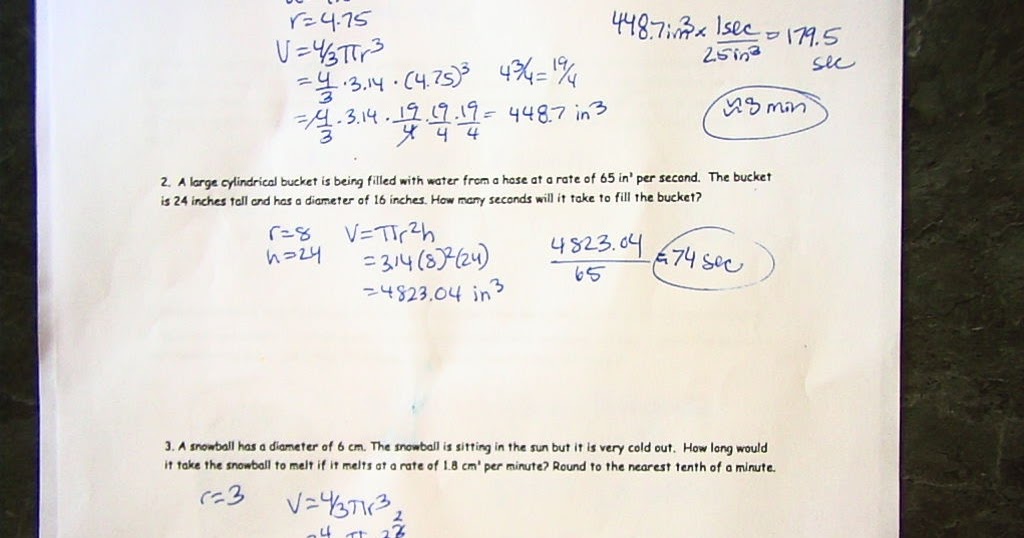 r=4.75
V=4/3πr³
=4/3·3.14·(4.75)³ 4 3/4=19/4
=4/3·3.14·19/4·19/4·19/4= 448.7 in³
448.7in³× 1sec/25in³ =179.5
sec
≈3 min
2. A large cylindrical bucket is being filled with water from a hose at a rate of 65 in³ per second. The bucket
is 24 inches tall and has a diameter of 16 inches. How many seconds will it take to fill the bucket?
r=8 V=πr²h
h=24 =3.14(8)²(24)
=4823.04 in³
4823.04/65 ≈74 sec
3. A snowball has a diameter of 6 cm. The snowball is sitting in the sun but it is very cold out. How long would
it take the snowball to melt if it melts at a rate of 1.8 cm³ per minute? Round to the nearest tenth of a minute.
r=3 V=4/3πr³